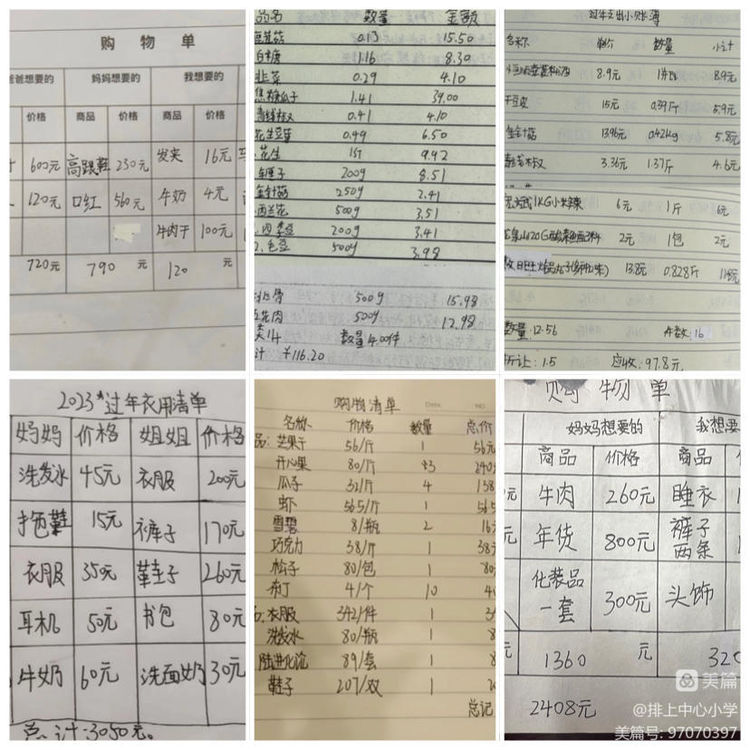 购 物 单
爸爸想要的 妈妈想要的 我想要的
价格 商品 价格 商品 价格
600元 高跟鞋 230元 发夹 16元
120元 口红 560元 牛奶 4元
牛肉干 100元
720元 790 元 120
品名 数量 金额
0.13 15.50
白糖 1.16 8.30
韭菜 0.29 4.10
焦糖瓜子 1.41 39.00
0.41 4.10
花生豆芽 0.49 6.50
花生 1斤 9.92
200g 8.51
金针菇 250g 2.41
西兰花 500g 3.51
四季豆 200g 3.41
毛豆 500g 3.98
排骨 500g 15.98
五花肉 500g 12.98
类14 数量4.00件
计 ¥116.20
过年支出小账簿
名称 单价 数量 小计
8.9元 8.9元
干豆皮 15元 0.39斤 5.9元
金针菇 13.96元 0.42kg 5.8元
3.36元 1.37斤 4.6元
1KG小米辣 6元 1斤 6元
2元 1包 2元
13.8元 0.828斤
数量:12.56 件数:16
折让:1.5 应收:97.8元
2023年过年衣用清单
妈妈 价格 姐姐 价格
洗发水 45元 衣服 200元
拖鞋 15元 裤子 170元
衣服 350元 鞋子 260元
耳机 50元 书包 80元
牛奶 60元 洗面奶 30元
总计:3050元。
购物清单
名称 价格 数量 总价
品:芒果干 56/斤 1 56元
开心果 80/斤 3 240
瓜子 32/斤 4 158
虾 56.5/斤 1 56.5
雪碧 8/瓶 2 16
巧克力 38/斤 1 38
桔子 80/包 1 80
布丁 4/个 10 40
衣服 342/件 1
洗发水 80/瓶 1
陆进化论 89/套 1
鞋子 207/双 1
总记
购 物 单
妈妈想要的 我想要
商品 价格 商品
牛肉 260元 睡衣
年货 800元 裤子两条
化装品一套 300元 头饰
1360 元 320
2408元
美篇
@排上中心小学
美篇号: 97070397